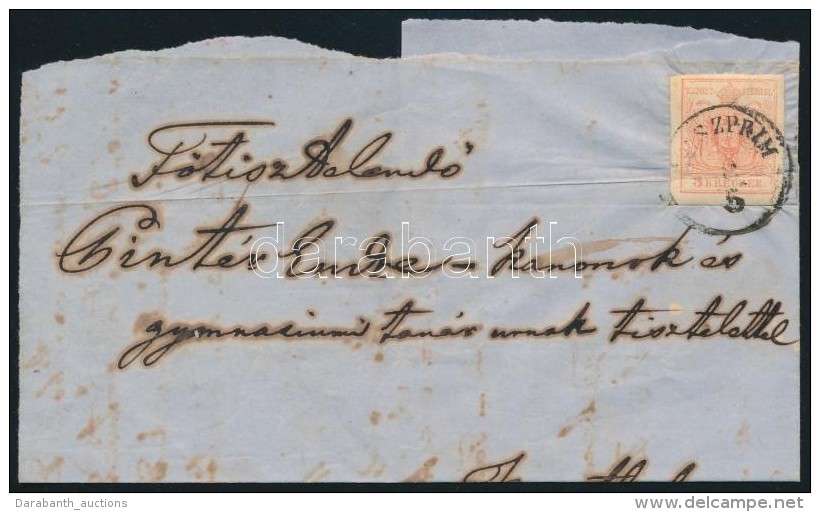 Főtisztelendő
Pintér Endre – kanonok és
gymnasiumi tanár urnak tisztelettel
SZPRIM
5
3 KREUZER
darabanth
Darabanth_auctions
delcampe.net